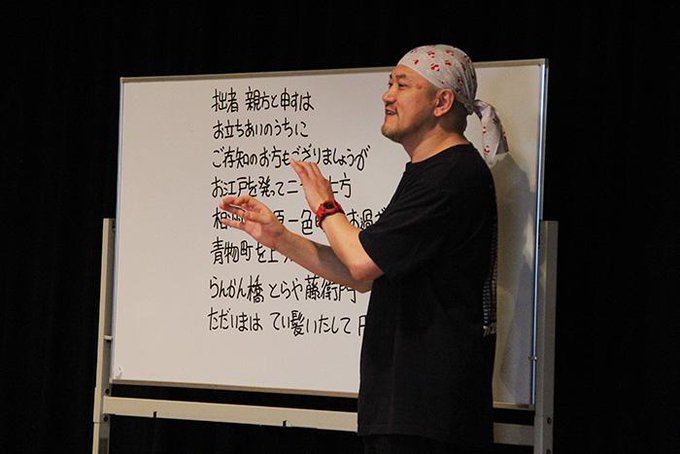 拙者 親方と申すは
お立ちあいのうちに
ご存知のお方もござりましょうが
お江戸を発って二 方
相 一色 お過
青物町を上
らんかん橋 とらや 藤衛門
ただいまは てい髪いたして